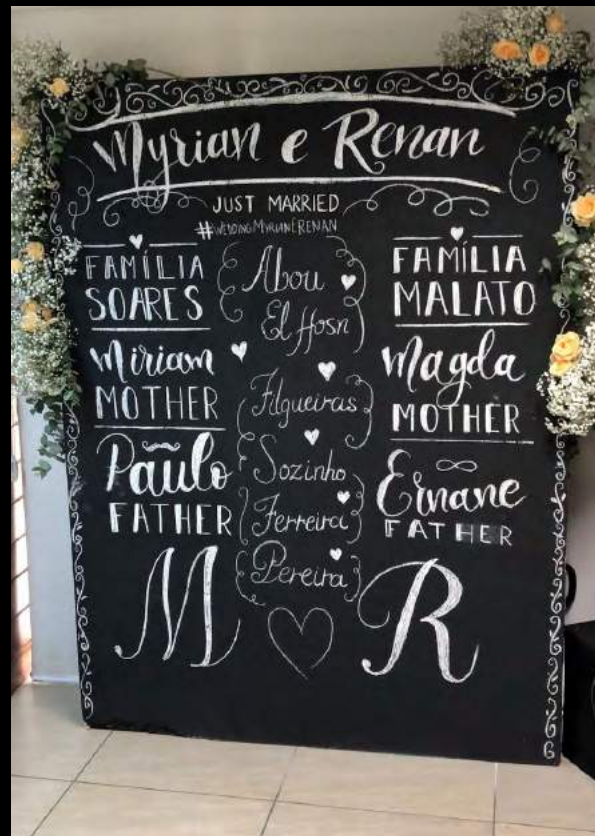 Myrian e Renan
JUST MARRIED
#WEDDINGMYRIANERENAN
FAMÍLIA
SOARES
Miriam
MOTHER
Paulo
FATHER
Abou
El Hosn
Filgueiras
Sozinho
Ferreira
Pereira
FAMÍLIA
MALATO
Magda
MOTHER
Ernane
FATHER
M R